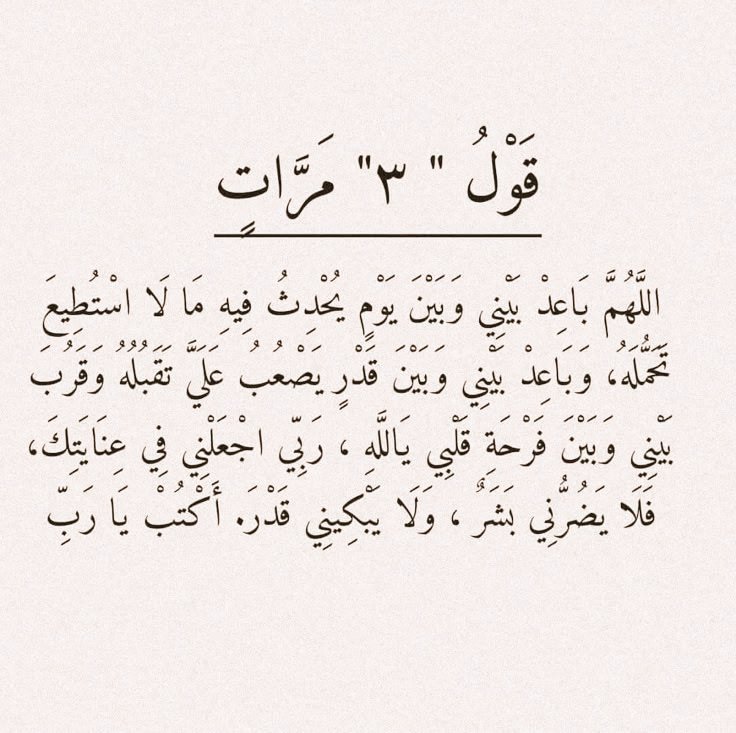 قَوْلُ " ٣" مَرَّاتٍ
اللَّهُمَّ بَاعِدْ بَيْنِي وَبَيْنَ يَوْمٍ يُحْدِثُ فِيهِ مَا لَا اسْتُطِيعَ
تَحَمُّلَهُ، وَبَاعِدْ بَيْنِي وَبَيْنَ قَدْرٍ يَصْعُبُ عَلَيَّ تَقَبُلُهُ وَقَرُبَ
بَيْنِي وَبَيْنَ فَرْحَةِ قَلْبِي يَاللَّهِ ، رَبِّي اجْعَلْنِي فِي عِنَايَتِكَ،
فَلَا يَضُرُّنِي بَشَرٌ ، وَلَا يَبْكِينِي قَدْرَ. أَكْتُبْ يَا رَبِّ